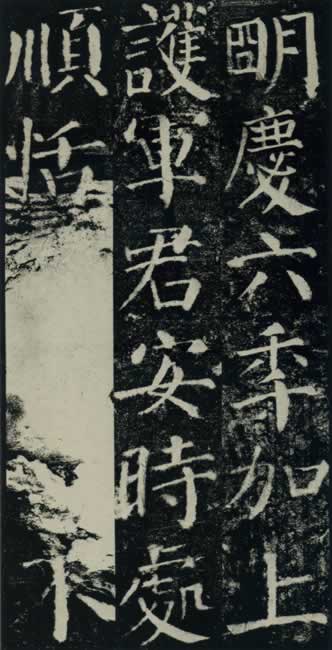 明慶六秊加上
護軍君安時處
順恬